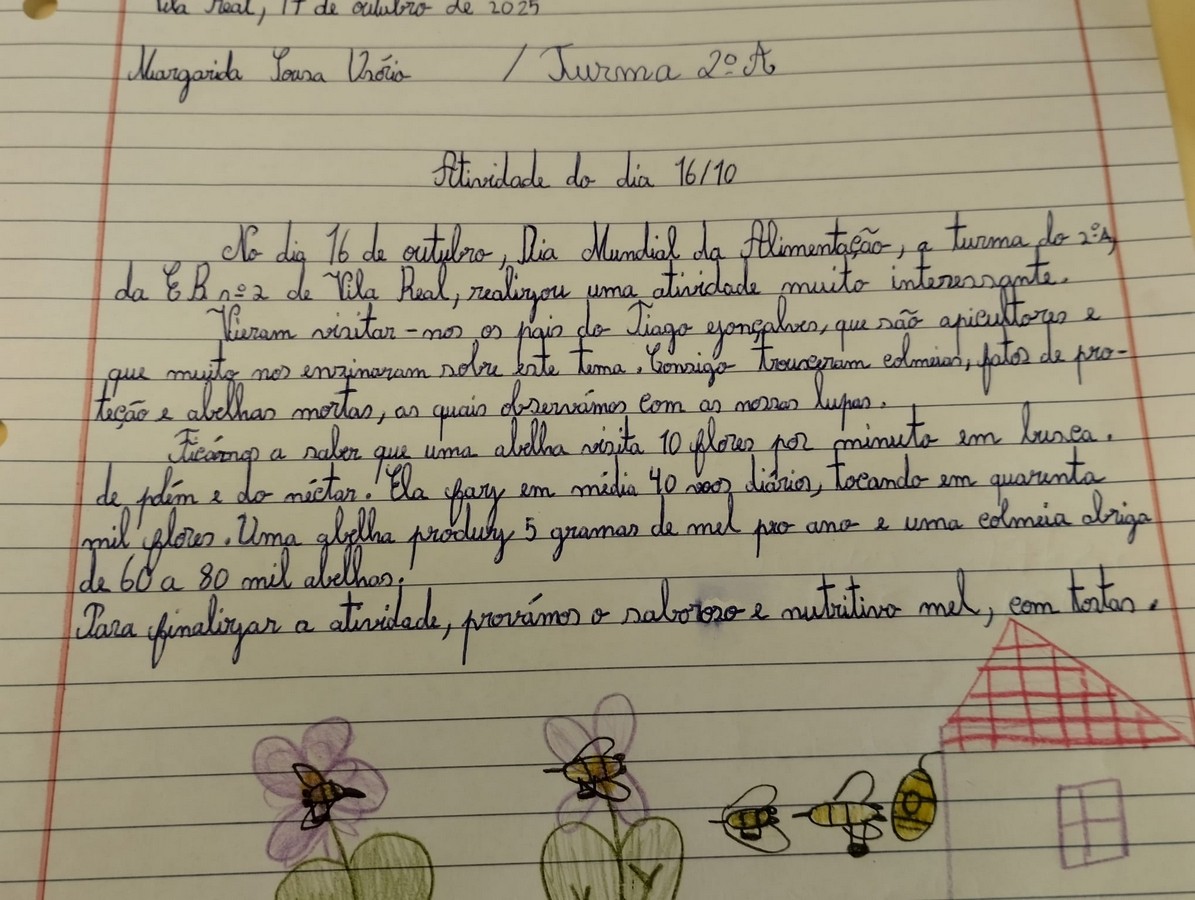 Vila Real, 17 de outubro de 2025
Margarida Sousa Osório / Turma 2º A
Atividade do dia 16/10
No dia 16 de outubro, Dia Mundial da Alimentação, a turma do 2ºA,
da EB nº2 de Vila Real, realizou uma atividade muito interessante.
Vieram visitar-nos os pais do Tiago Gonçalves, que são apicultores e
que muito nos ensinaram sobre este tema. Consigo trouxeram colmeias, fatos de pro-
teção e abelhas mortas, as quais observámos com as nossas lupas.
Ficámos a saber que uma abelha visita 10 flores por minuto em busca.
de pólém e do néctar. Ela faz em média 40 voos diários, tocando em quarenta
mil flores. Uma abelha produz 5 gramas de mel pro ano e uma colmeia abriga
de 60 a 80 mil abelhas.
Para finalizar a atividade, provámos o saboroso e nutritivo mel, com tostas.